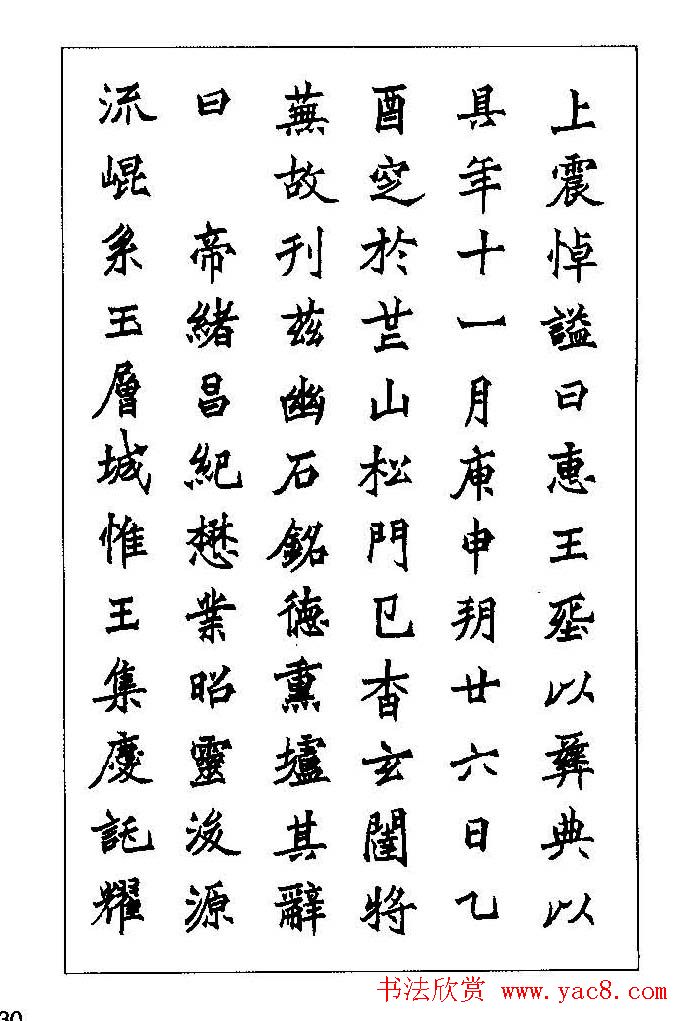 上震悼謚曰惠王葬以彝典以
其年十一月庚申朔廿六日乙
酉窆於芒山松門已杳玄闥將
蕪故刊茲幽石銘德熏壚其辭
曰 帝緒昌紀懋業昭靈浚源
流崐系玉層城惟王集慶託耀
30
书法欣赏 www.yac8.com